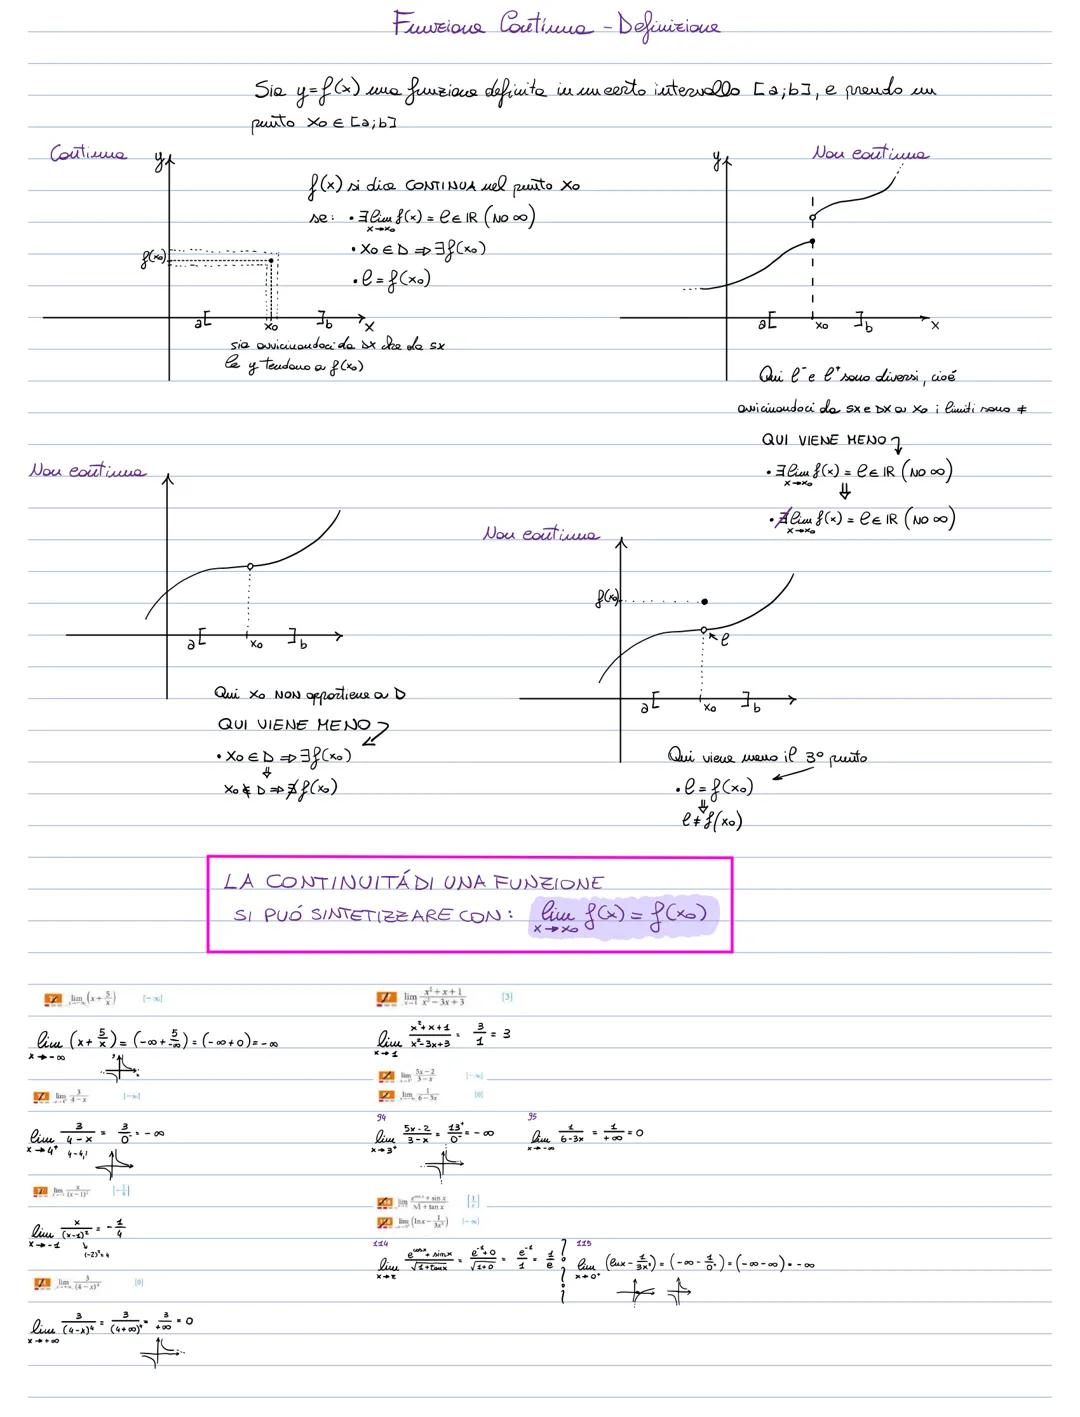 Funzione Continua - Definizione
Sia y=f(x) una funzione definita in un certo intervallo [a;b], e prendo un
punto x₀ ∈ [a;b]
Continua
y
f(x) si dice CONTINUA nel punto x₀
se: • ∃ lim f(x) = ℓ ∈ ℝ (NO ∞)
x→x₀
• x₀ ∈ D ⇒ ∃ f(x₀)
• ℓ = f(x₀)
f(x₀)
a[ x₀ ]b x
sia avvicinandoci da DX che da SX
le y tendono a f(x₀)
Non continua
y
a[ x₀ ]b x
Qui ℓ⁻ e ℓ⁺ sono diversi, cioé
avvicinandoci da SX e DX a x₀ i limiti sono ≠
QUI VIENE MENO
• ∃ lim f(x) = ℓ ∈ ℝ (NO ∞)
x→x₀
⇓
• ∄ lim f(x) = ℓ ∈ ℝ (NO ∞)
x→x₀
Non continua
a[ x₀ ]b
Qui x₀ NON appartiene a D
QUI VIENE MENO
• x₀ ∈ D ⇒ ∃ f(x₀)
⇓
x₀ ∉ D ⇒ ∄ f(x₀)
Non continua
f(x₀)
ℓ
a[ x₀ ]b
Qui viene meno il 3° punto
• ℓ = f(x₀)
⇓
ℓ ≠ f(x₀)
LA CONTINUITÁ DI UNA FUNZIONE
SI PUÓ SINTETIZZARE CON: lim f(x) = f(x₀)
x→x₀
lim (x + 5/x) [-∞]
lim (x + 5/x) = (-∞ + 5/-∞) = (-∞ + 0) = -∞
x→-∞
lim 3/(4-x) [-∞]
lim 3/(4-x) = 3/0⁻ = -∞
x→4⁺ 4-4,1
lim x/(x-1)² [-1/4]
lim x/(x-1)² = -1/4
x→-1 (-2)²=4
lim 3/(4-x)⁴ [0]
lim 3/(4-x)⁴ = 3/(4+∞)⁴ = 3/+∞ = 0
x→+∞
lim (x²+x+1)/(x²-3x+3) [3]
x→1
lim (x²+x+1)/(x²-3x+3) = 3/1 = 3
x→1
lim (5x-2)/(3-x) [-∞]
lim 1/(6-3x) [0]
94
lim (5x-2)/(3-x) = 13⁺/0⁻ = -∞
x→3⁺
95
lim 1/(6-3x) = 1/+∞ = 0
x→-∞
lim (e^cos x + sin x)/√(1+tan x) [1/e]
lim (ln x - 1/3x²) [-∞]
114
lim (e^cosx + sinx)/√(1+tanx) = (e⁻¹+0)/√(1+0) = e⁻¹/1 = 1/e
115
lim = (-∞ - 1/0⁺) = (-∞-∞) = -∞
x→0⁺